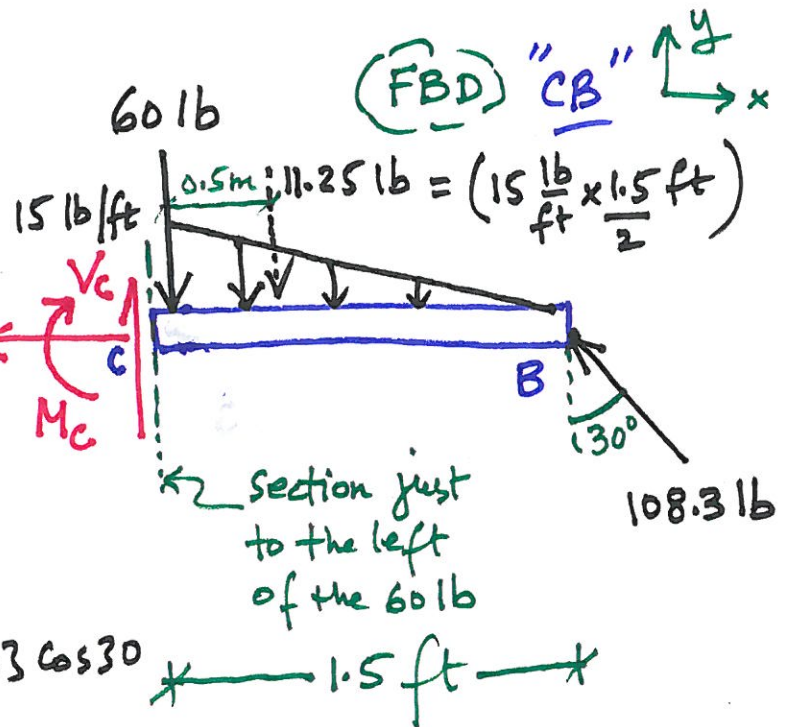 (FBD) "CB" y
x
60 lb
0.5m 11.25 lb = (15 lb/ft × 1.5 ft/2)
15 lb/ft
Vc
C
Mc
B
30°
108.3 lb
section just
to the left
of the 60 lb
3 cos30
1.5 ft